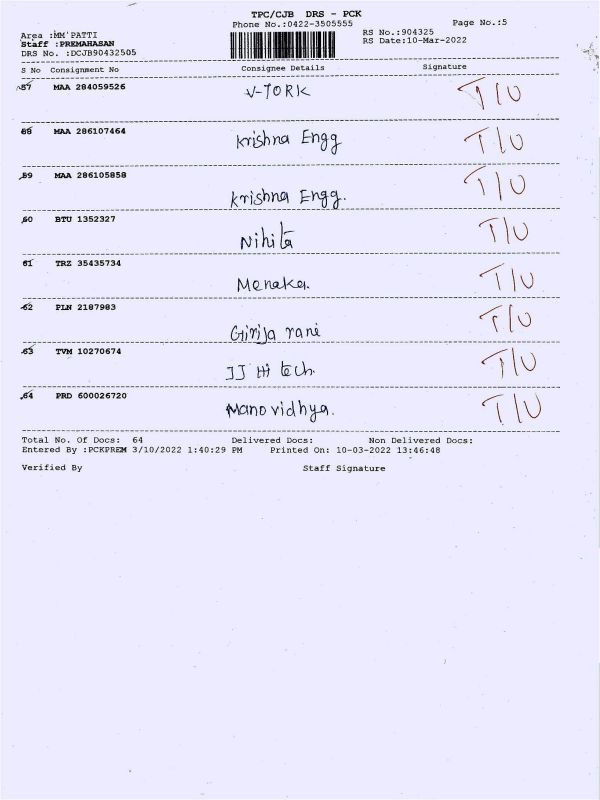 TPC/CJB DRS - PCK
Phone No.:0422-3505555 Page No.:5
Area :MM PATTI RS No.:904325
Staff :PREMAHASAN RS Date:10-Mar-2022
DRS No. :DCJB90432505
S No Consignment No Consignee Details Signature
57 MAA 284059526 V-TORK T/U
58 MAA 286107464 Krishna Engg T/U
59 MAA 286105858 Krishna Engg. T/U
60 BTU 1352327 Nihita T/U
61 TRZ 35435734 Menaka. T/U
62 PLN 2187983 Girija rani T/U
63 TVM 10270674 JJ Hi tech. T/U
64 PRD 600026720 Mano vidhya. T/U
Total No. Of Docs: 64 Delivered Docs: Non Delivered Docs:
Entered By :PCKPREM 3/10/2022 1:40:29 PM Printed On: 10-03-2022 13:46:48
Verified By Staff Signature